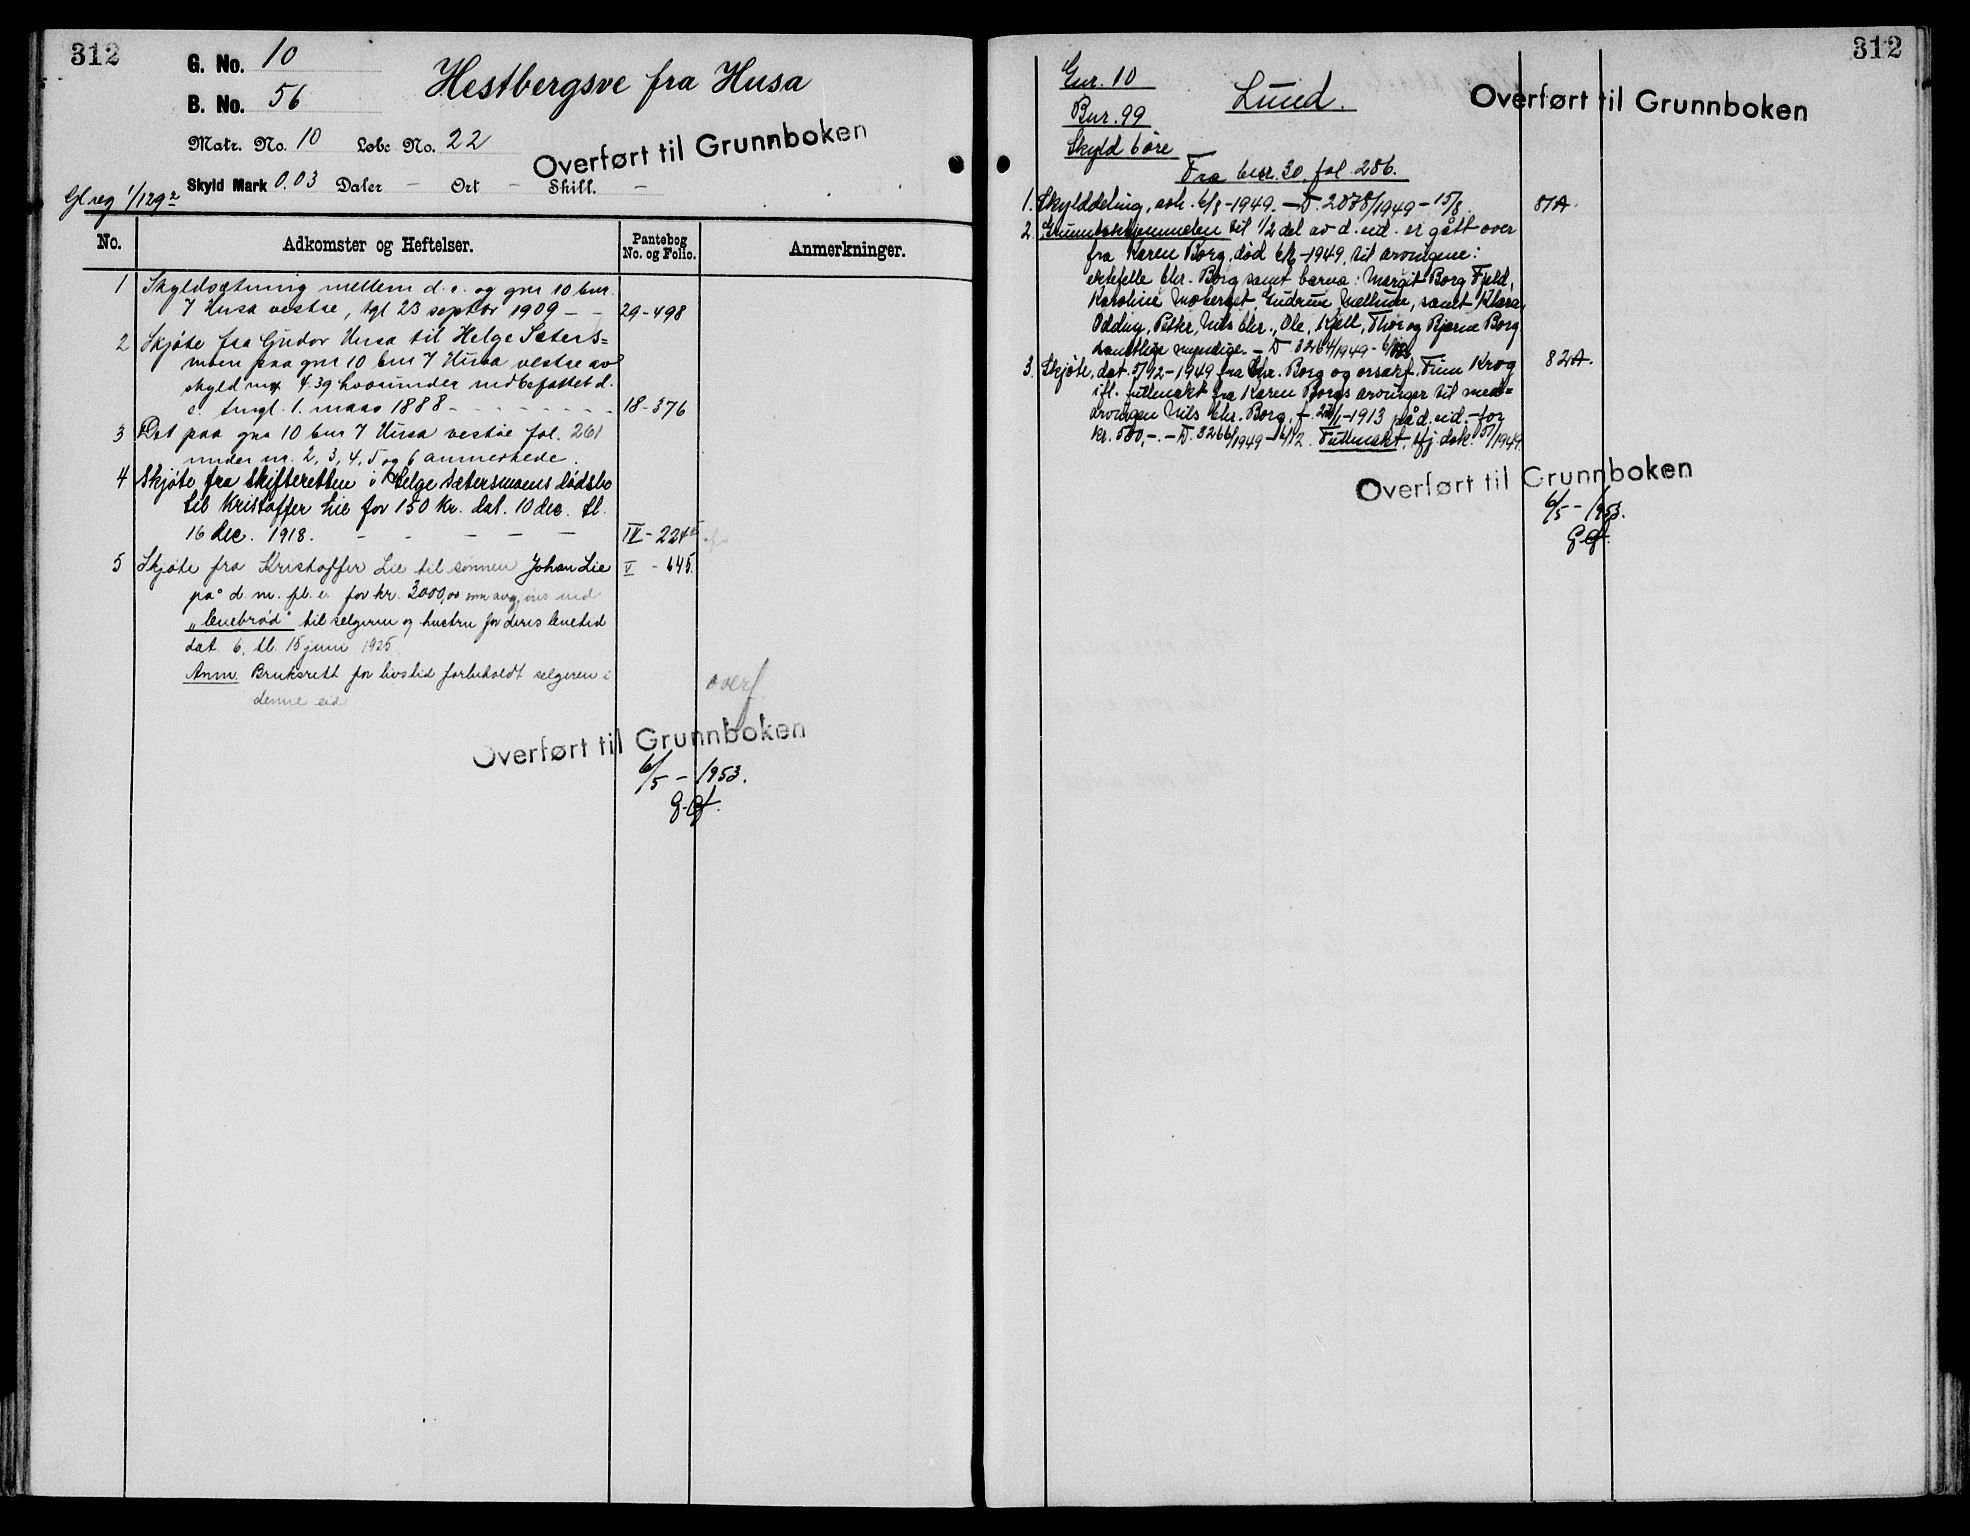 312
G. No. 10
B. No. 56
Hestbergsve fra Husa
Matr. No. 10 Løbe No. 22
Overført til Grunnboken
Skyld Mark 0.03 Daler – Ort – Skill. –
Gl reg 1/129²
No. Adkomster og Heftelser. Pantebog No. og Folio. Anmerkninger.
1 Skyldsætning mellem d. e. og gnr 10 bnr.
7 Husa vestre, tgl 23 septbr 1909 – – 29-498
2 Skjøte fra Gudov Husa til Helge Sæters=
moen paa gnr 10 bnr 7 Husa vestre av
skyld mk 4.39 hvorunder indbefattet d.
e. tingl. 1. mars 1888 - - - - - - - - 18-376
3 Det paa gnr 10 bnr 7 Husa vestre fol. 261
under nr. 2, 3, 4, 5 og 6 anmerkede.
4 Skjøte fra Skifteretten i Helge Sætersmoens dødsbo
til Kristoffer Lie for 150 Kr. dat. 10 dec. tl.
16 dec. 1918. – – – – – IV-224
5 Skjøte fra Kristoffer Lie til sønnen Johan Lie V - 645
på d. m. fl. e. for kr. 3000,00 som avgjøres med
"levebrød" til selgeren og hustru for deres levetid
dat. 6. tl. 15 juni 1925
Anm. Bruksrett for livstid forbeholdt selgeren i
denne eid.
overf.
Overført til Grunnboken
6/5 – 1953.
312
Gnr. 10
Bnr. 99
Skyld 6 øre
Lund.
Overført til Grunnboken
Fra bnr. 30, fol. 286.
1. Skylddeling, avh. 6/8-1949. – D. 2078/1949 – 15/8. 81A.
2. Grunnbokhjemmelen til 1/2 del av d. eid. er gått over
fra Karen Borg, død 6/6-1949, til arvingene:
ektefelle Chr. Borg samt barna: Margit Borg Fjeld,
Karoline Moberget, Gudrun Mellum, samt Klara,
Oddny, Petter, Nils Chr., Ole, Kjell, Thor og Bjarne Borg
samtlige myndige. – D 3264/1949 - 6/12
3. Skjøte, dat. 5/12-1949 fra Chr. Borg og orsakf. Finn Krog 82A.
ifl. fullmakt fra Karen Borgs arvinger til med=
arvingen Nils Chr. Borg, f. 22/1-1913 på d. eid. – for
kr. 500,-. – D. 3266/1949 – 6/12. Fullmakt, cfj dok. /1949.
Overført til Grunnboken
6/5 – 1953.